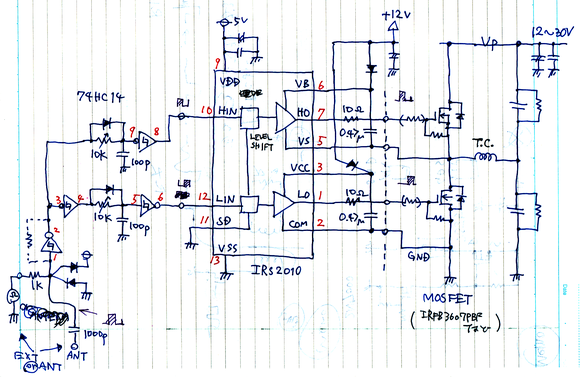 +12V
12~30V
-5V
Vp
9
VDD
VB 6
74HC14
9 8
10 HIN
HO 7
10Ω
10K
100p
LEVEL
SHIFT
0.47μ
VS 5
T.C.
VCC 3
3 4
5 6
12 LIN
LO 1
10Ω
10K
100p
11 SD
0.47μ
COM 2
2
VSS
GND
1
13
IRS2010
1K
MOSFET
(IRFB3607PBF
など)
1000p
EXT
or ANT
ANT